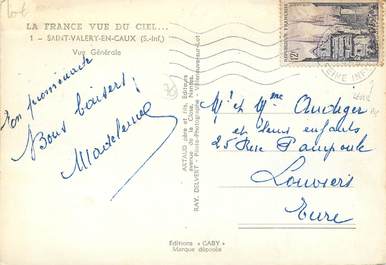 LA FRANCE VUE DU CIEL...
1 – SAINT-VALERY-EN-CAUX (S.-Inf.)
Vue Générale
En promenade
Bons baisers
Madeleine
ARTAUD père et fils, Éditeurs
avenue de la Close, Nantes.
RAY. DELVERT - Pilote-Photographe - Villeneuve-sur-Lot
12F
SEINE INF
Mr et Mme Audiger
et leurs enfants
25 Rue Pampoule
Louviers
Eure
Editions "GABY"
Marque déposée